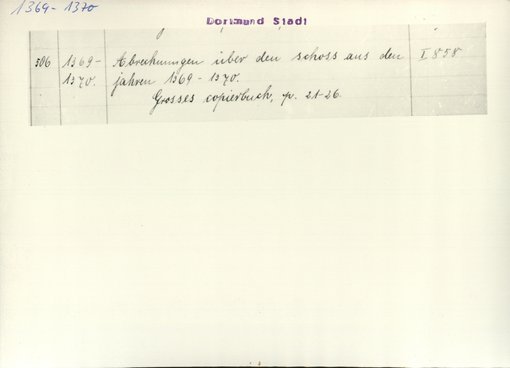 1369-1370
Dortmund Stadt
506 1369- Abrechnungen über den schoss aus den I 858
1370. jahren 1369-1370.
Grosses copierbuch, p. 21-26.